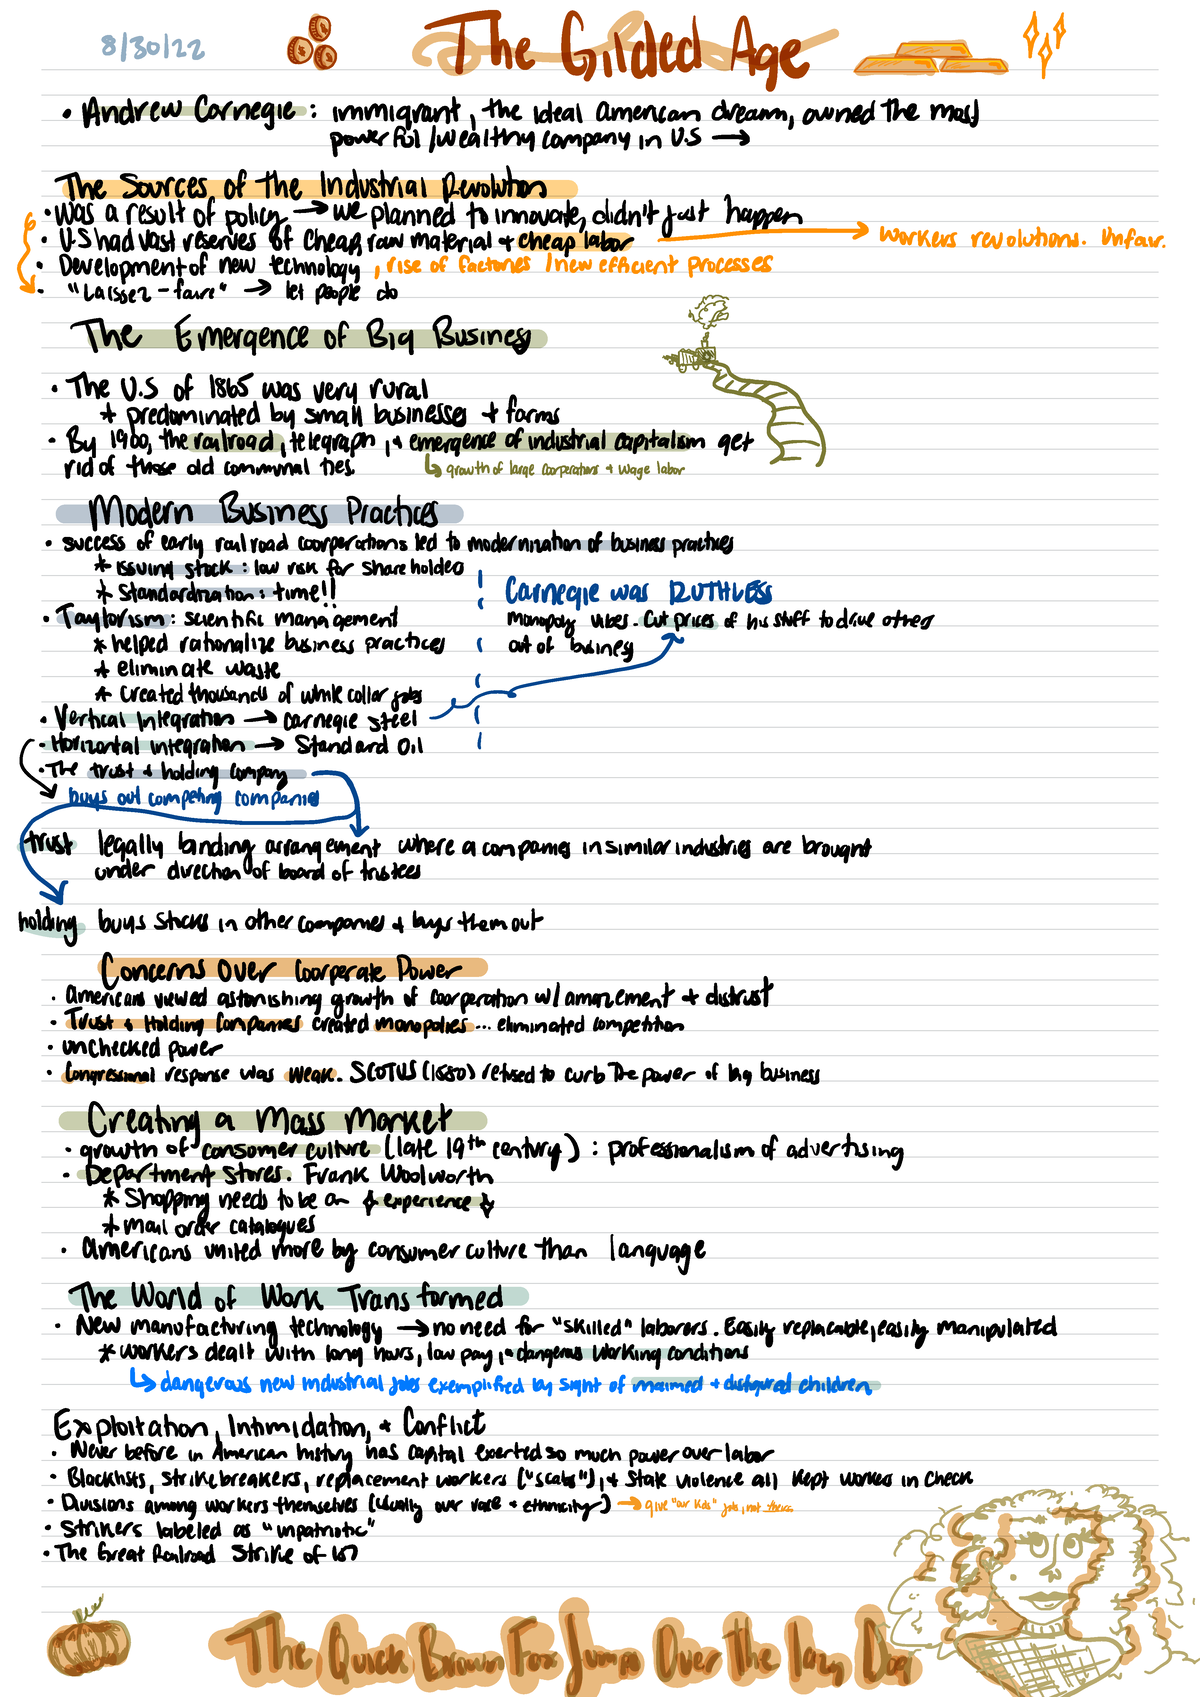 8/30/22
The Gilded Age
• Andrew Carnegie : immigrant, the ideal american dream, owned the most
powerful/wealthy company in U.S →
The Sources of the Industrial Revolution
• Was a result of policy → we planned to innovate, didn't just happen
• U.S had vast reserves of cheap, raw material + cheap labor → Workers revolutions. Unfair.
• Development of new technology, rise of factories / new efficient processes
• "Laissez-faire" → let people do
The Emergence of Big Business
• The U.S of 1865 was very rural
* predominated by small businesses + farms
• By 1900, the railroad, telegraph, + emergence of industrial capitalism get
rid of those old communal ties.
↳ growth of large coorperations + wage labor
Modern Business Practices
• success of early railroad coorperations led to modernization of business practices
* issuing stock : low risk for shareholders
* Standardization : time!!
• Taylorism : scientific management
* helped rationalize business practices
* eliminate waste
* Created thousands of white collar jobs
• Vertical Integration → Carnegie Steel
• Horizontal integration → Standard Oil
• The trust + holding company
buys out competing companies
Carnegie was RUTHLESS
monopoly vibes. Cut prices of his stuff to drive others
out of business
trust legally binding arrangement where a companies in similar industries are brought
under direction of board of trustees
holding buys stocks in other companies + buys them out
Concerns Over Coorperate Power
• Americans viewed astonishing growth of coorperation w/ amazement + distrust
• Trust + Holding Companies created monopolies... eliminated competition
• unchecked power
• Congressional response was weak. SCOTUS (1880) refused to curb the power of big business
Creating a Mass Market
• growth of consumer culture (late 19th century) : professionalism of advertising
• Department Stores. Frank Woolworth
* Shopping needs to be an experience
* mail order catalogues
• americans united more by consumer culture than language
The World of Work Transformed
• New manufacturing technology → no need for "skilled" laborers. Easily replacable, easily manipulated
* workers dealt with long hours, low pay, + dangerous working conditions
↳ dangerous new industrial jobs exemplified by sight of maimed + disfigured children
Exploitation, Intimidation, + Conflict
• Never before in American history has capital exerted so much power over labor
• Blacklists, strikebreakers, replacement workers ("scabs"), + State violence all kept workers in check
• Divisions among workers themselves (usually over race + ethnicity) → give "our kids" jobs, not theirs
• Strikers labeled as "unpatriotic"
• The Great Railroad Strike of
The Quick Brown Fox Jumps Over the lazy Dog